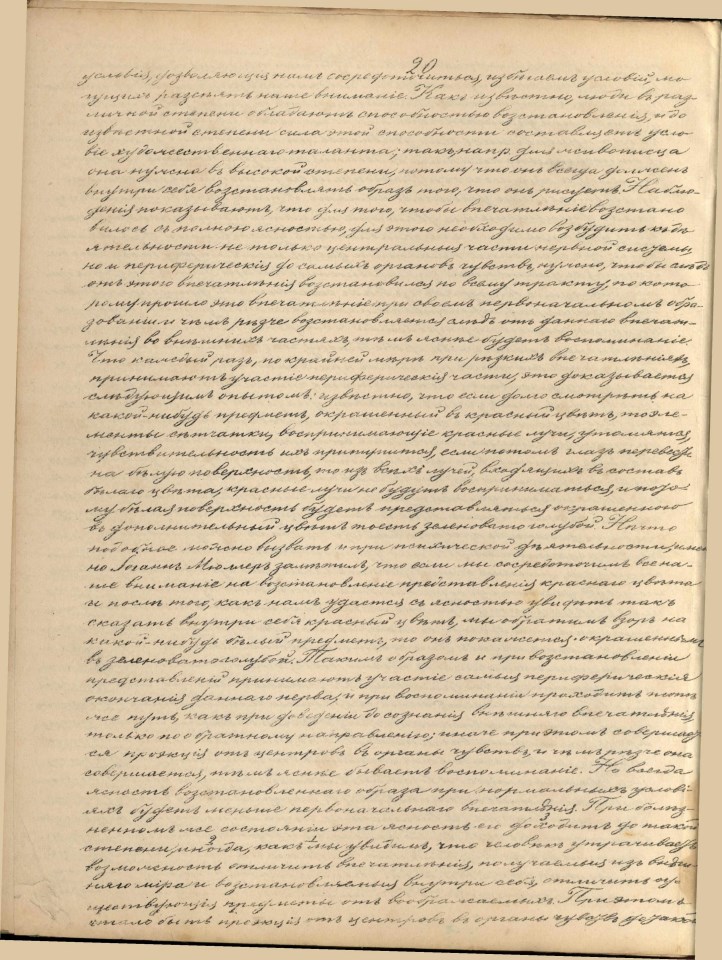 20
условія, дозволяющія намъ сосредоточиться, избѣгаемъ условій, мо-
гущихъ разсѣять наше вниманіе. Какъ извѣстно, люди въ раз-
личной степени обладаютъ способностью возстановленія, и до
извѣстной степени сила этой способности составляетъ усло-
віе художественнаго таланта; такъ, напр. для живописца
она нужна въ высокой степени, потому что онъ всегда долженъ
внутри себя возстановлять образъ того, что онъ рисуетъ. Наблю-
денія показываютъ, что для того, чтобы впечатлѣніе возстано
вилось съ полною ясностью, для этого необходимо возбудить къ дѣ-
ятельности не только центральныя части нервной системы,
но и периферическія до самыхъ органовъ чувствъ, нужно, чтобы слѣдъ
отъ этого впечатлѣнія возстановился по всему тракту, по кото-
рому прошло это впечатлѣніе при своемъ первоначальномъ обра-
зованіи и чѣмъ рѣзче возстановляется слѣдъ отъ даннаго впечат-
лѣнія во внѣшнихъ частяхъ, тѣмъ яснѣе будетъ воспоминаніе.
Что каждый разъ, по крайней мѣрѣ при рѣзкихъ впечатлѣніяхъ,
принимаютъ участіе периферическія части, это доказывается
слѣдующимъ опытомъ: извѣстно, что если долго смотрѣть на
какой-нибудь предметъ, окрашенный въ красный цвѣтъ, то эле-
менты сѣтчатки, воспринимающіе красные лучи, утомляются,
чувствительность ихъ притупится, если потомъ глазъ переведе
на бѣлую поверхность, то изъ всѣхъ лучей, входящихъ въ составъ
бѣлаго цвѣта, красные лучи не будутъ восприниматься, и пото-
му бѣлая поверхность будетъ представляться окрашенною
въ дополнительный цвѣтъ то есть зеленовато голубой. Нѣчто
подобное можно вызвать и при психической дѣятельности, имен
но Іоганнъ Мюллеръ замѣтилъ, что если мы сосредоточимъ все на-
ше вниманіе на возстановленіе представленія краснаго цвѣта
и послѣ того, какъ намъ удастся съ ясностью увидѣть такъ
сказать внутри себя красный цвѣтъ, мы обратимъ взоръ на
какой-нибудь бѣлый предметъ, то онъ покажется окрашеннымъ
въ зеленоватоголубой. Такимъ образомъ и при возстановленіи
представленій принимаютъ участіе самыя периферическія
окончанія даннаго нерва, и при воспоминаніи проходитъ тотъ
же путь, какъ при доведеніи до сознанія внѣшняго впечатлѣнія,
только по обратному направленію; иначе при этомъ совершает
ся проэкція отъ центровъ въ органы чувствъ, и чѣмъ рѣзче она
совершается, тѣмъ яснѣе бываетъ воспоминаніе. Но всегда
ясность возстановленнаго образа при нормальныхъ услові-
яхъ будетъ меньше первоначальнаго впечатлѣнія. При болѣз-
ненномъ же состояніи эта ясность его доходитъ до такой
степени, иногда, какъ мы увидимъ, что человѣкъ утрачиваетъ
возможность отличить впечатлѣнія, получаемыя изъ внѣш-
няго міра и возстановляемыя внутри себя, отличить су-
ществующія предметы отъ воображаемыхъ. При этомъ
стало быть проэкція отъ центровъ въ органы чувствъ